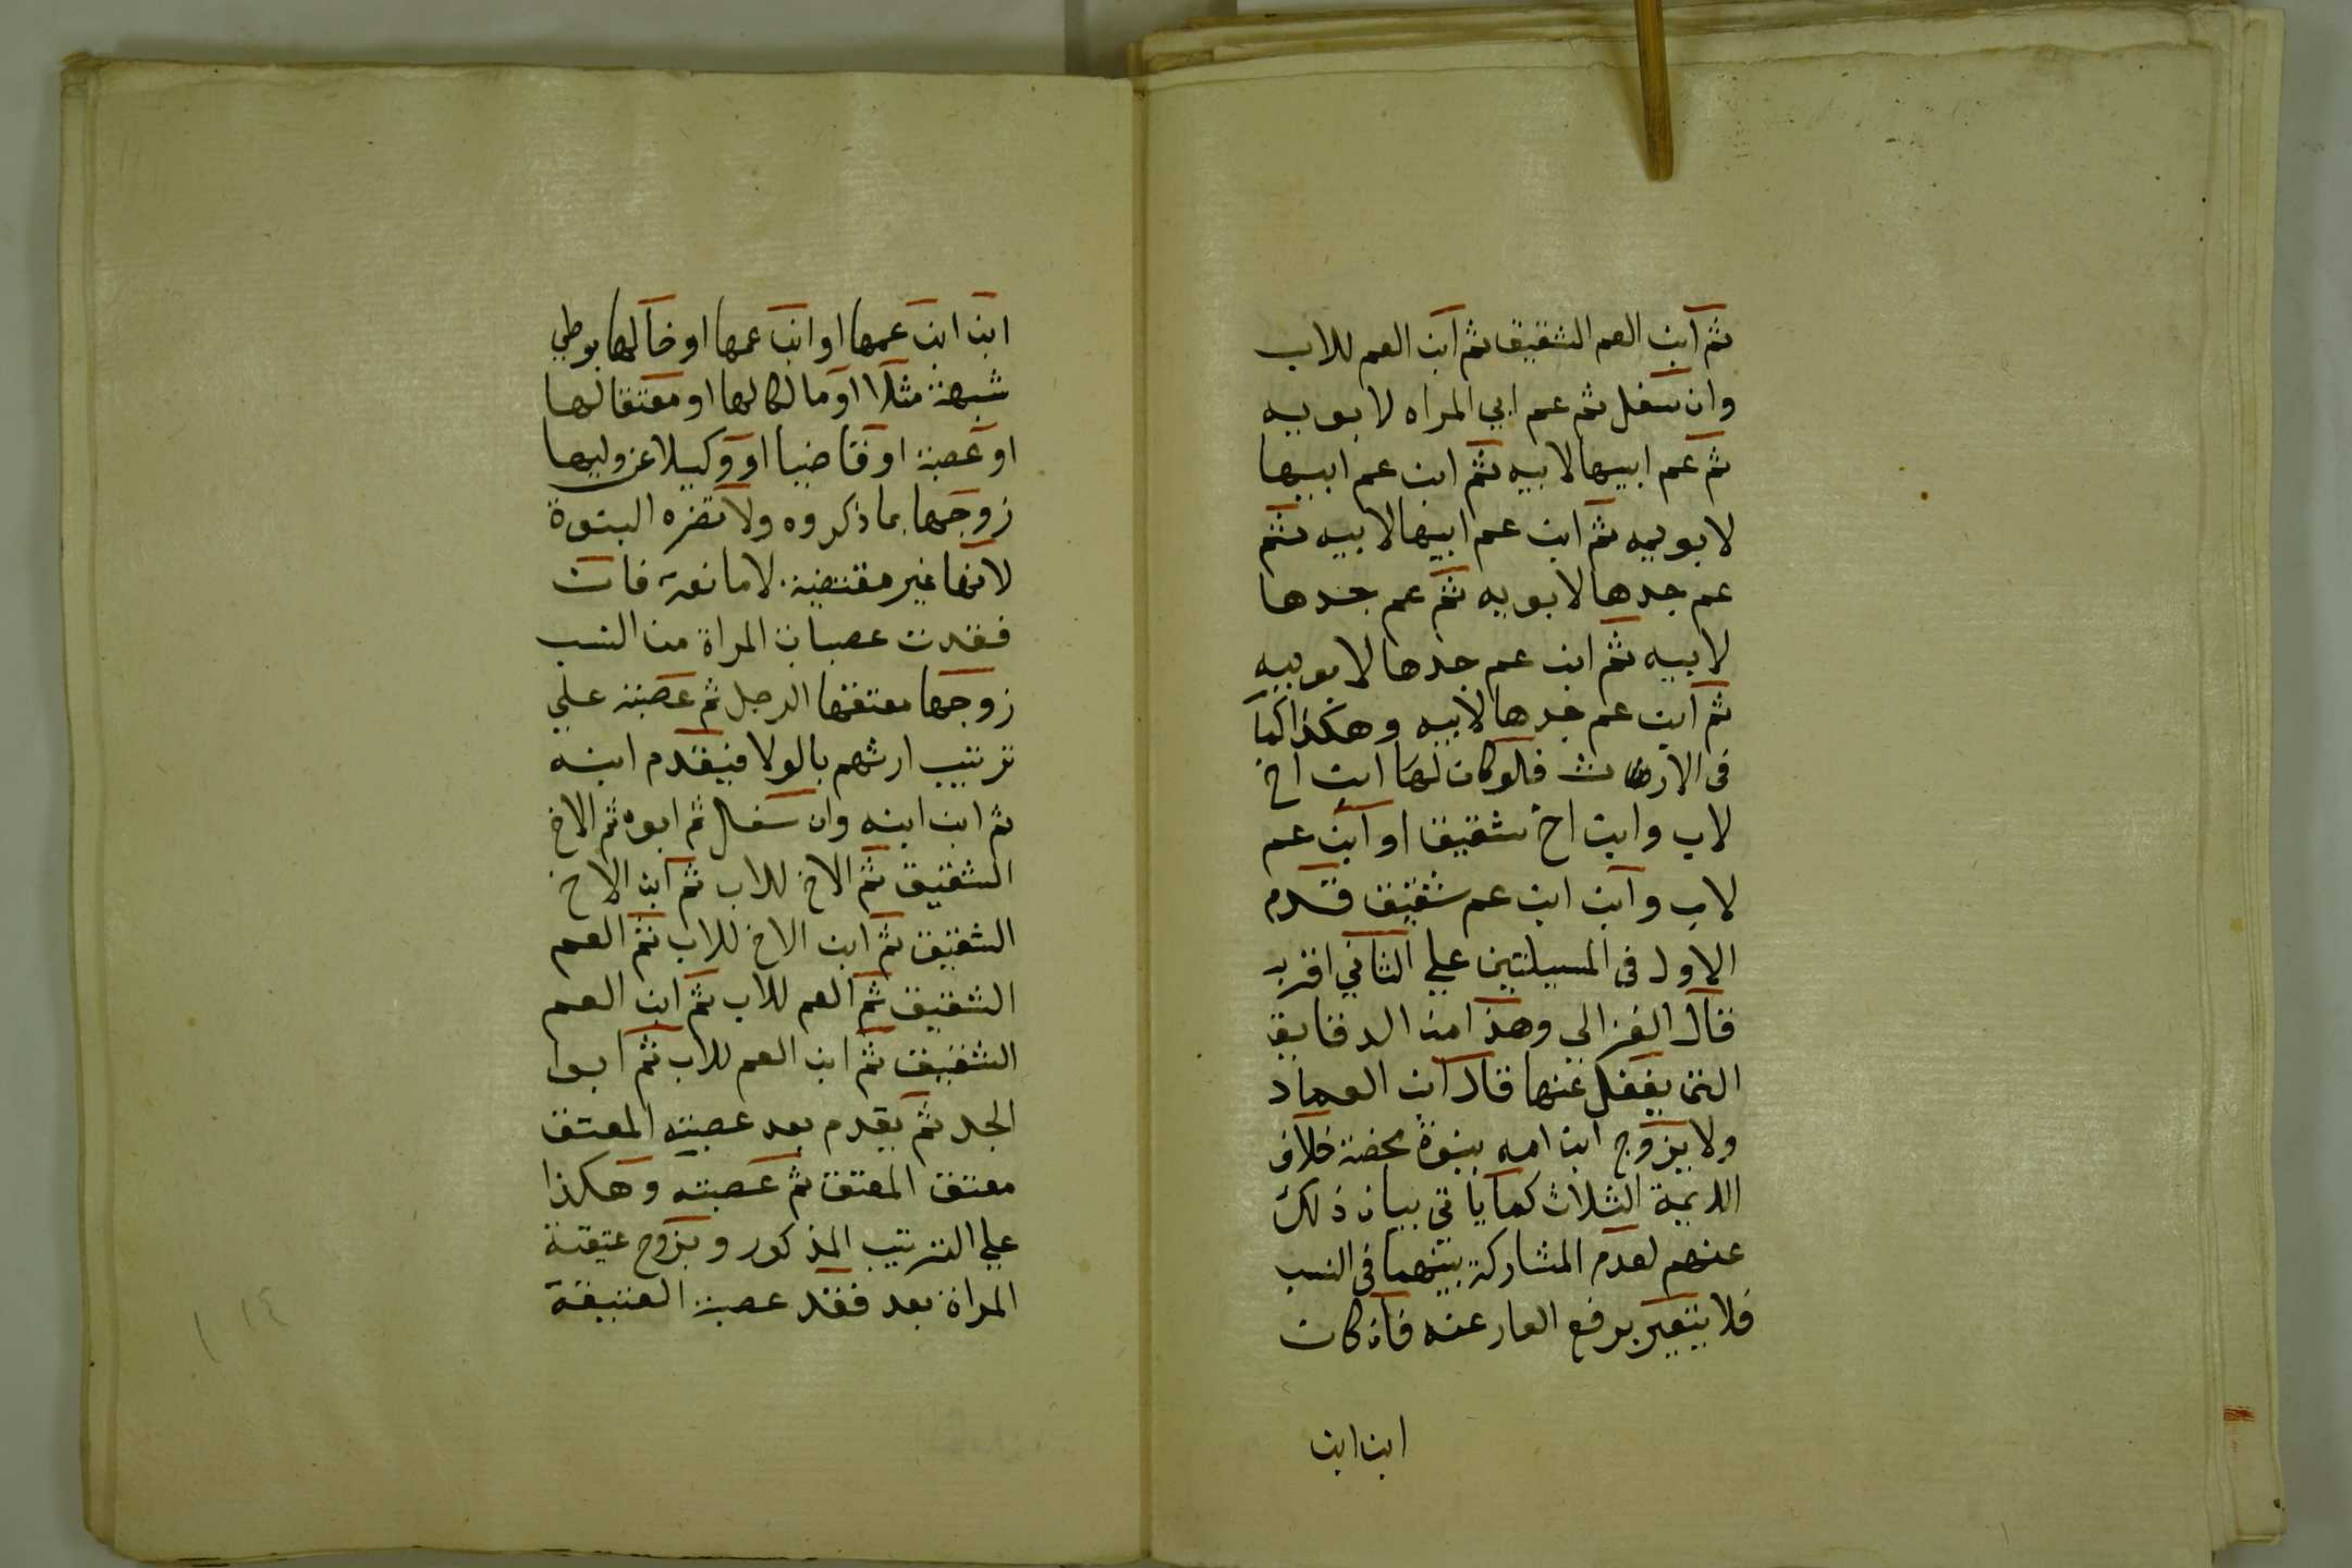 ثم ابن العم الشقيق ثم ابن العم للاب
وان سفل ثم عم ابي المراه لابويه
ثم عم ابيها لابيه ثم ابن عم ابيها
لابويه ثم ابن عم ابيها لابيه ثم
عم جدها لابويه ثم عم جدها
لابيه ثم ابن عم جدها لابويه
ثم ابن عم جدها لابيه وهكذا كما
في الارث فلو كان لها ابن اخ
لاب وابن اخ شقيق او ابن عم
لاب وابن ابن عم شقيق قدم
الاول في المسيلتين علي الثاني اقرب
قال الغزالي وهذا من الدقايق
التي يغفل عنها قال ابن العماد
ولا يزوج ابن امه ببنوة محضة خلاف
الايمة الثلاث كما ياتي بيان ذلك
عنهم لعدم المشاركة بينهما في النسب
فلا يتعير برفع العار عنه فان كان
ابن ابن
ابن ابن عمها او ابن عمها او خالها بوطي
شبهة مثلا او مالكا لها او معتقا لها
او عصبة او قاضيا او وكيلا عن وليها
زوجها بما ذكروه ولا تضره البنوة
لانها غير مقتضية لا مانعة فان
فقدت عصبات المراة من النسب
زوجها معتقها الرجل ثم عصبته علي
ترتيب ارثهم بالولا فيقدم ابنه
ثم ابن ابنه وان سفل ثم ابوه ثم الاخ
الشقيق ثم الاخ للاب ثم ابن الاخ
الشقيق ثم ابن الاخ للاب ثم العم
الشقيق ثم العم للاب ثم ابن العم
الشقيق ثم ابن العم للاب ثم ابوا
الجد ثم يقدم بعد عصبته المعتق
معتق المعتق ثم عصبته وهكذا
علي الترتيب المذكور ويزوج عتيقة
المراة بعد فقد عصبة العتيقة
١٤